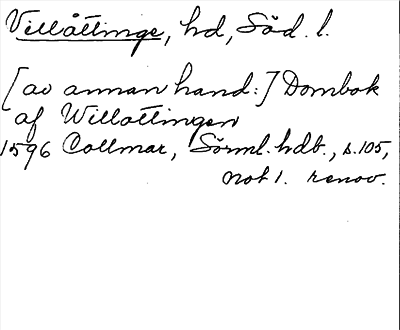 Villåttinge, hd, Söd. l.
[av annan hand:] Dombok
af Willottingen
1596 Collmar, Sörml. hdb., s. 105,
not 1. renov.